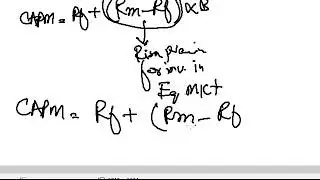 CAPM = Rf + (Rm - Rf) × B
Risk prem
for inv. in
Eq Mkt
CAPM = Rf + (Rm - Rf